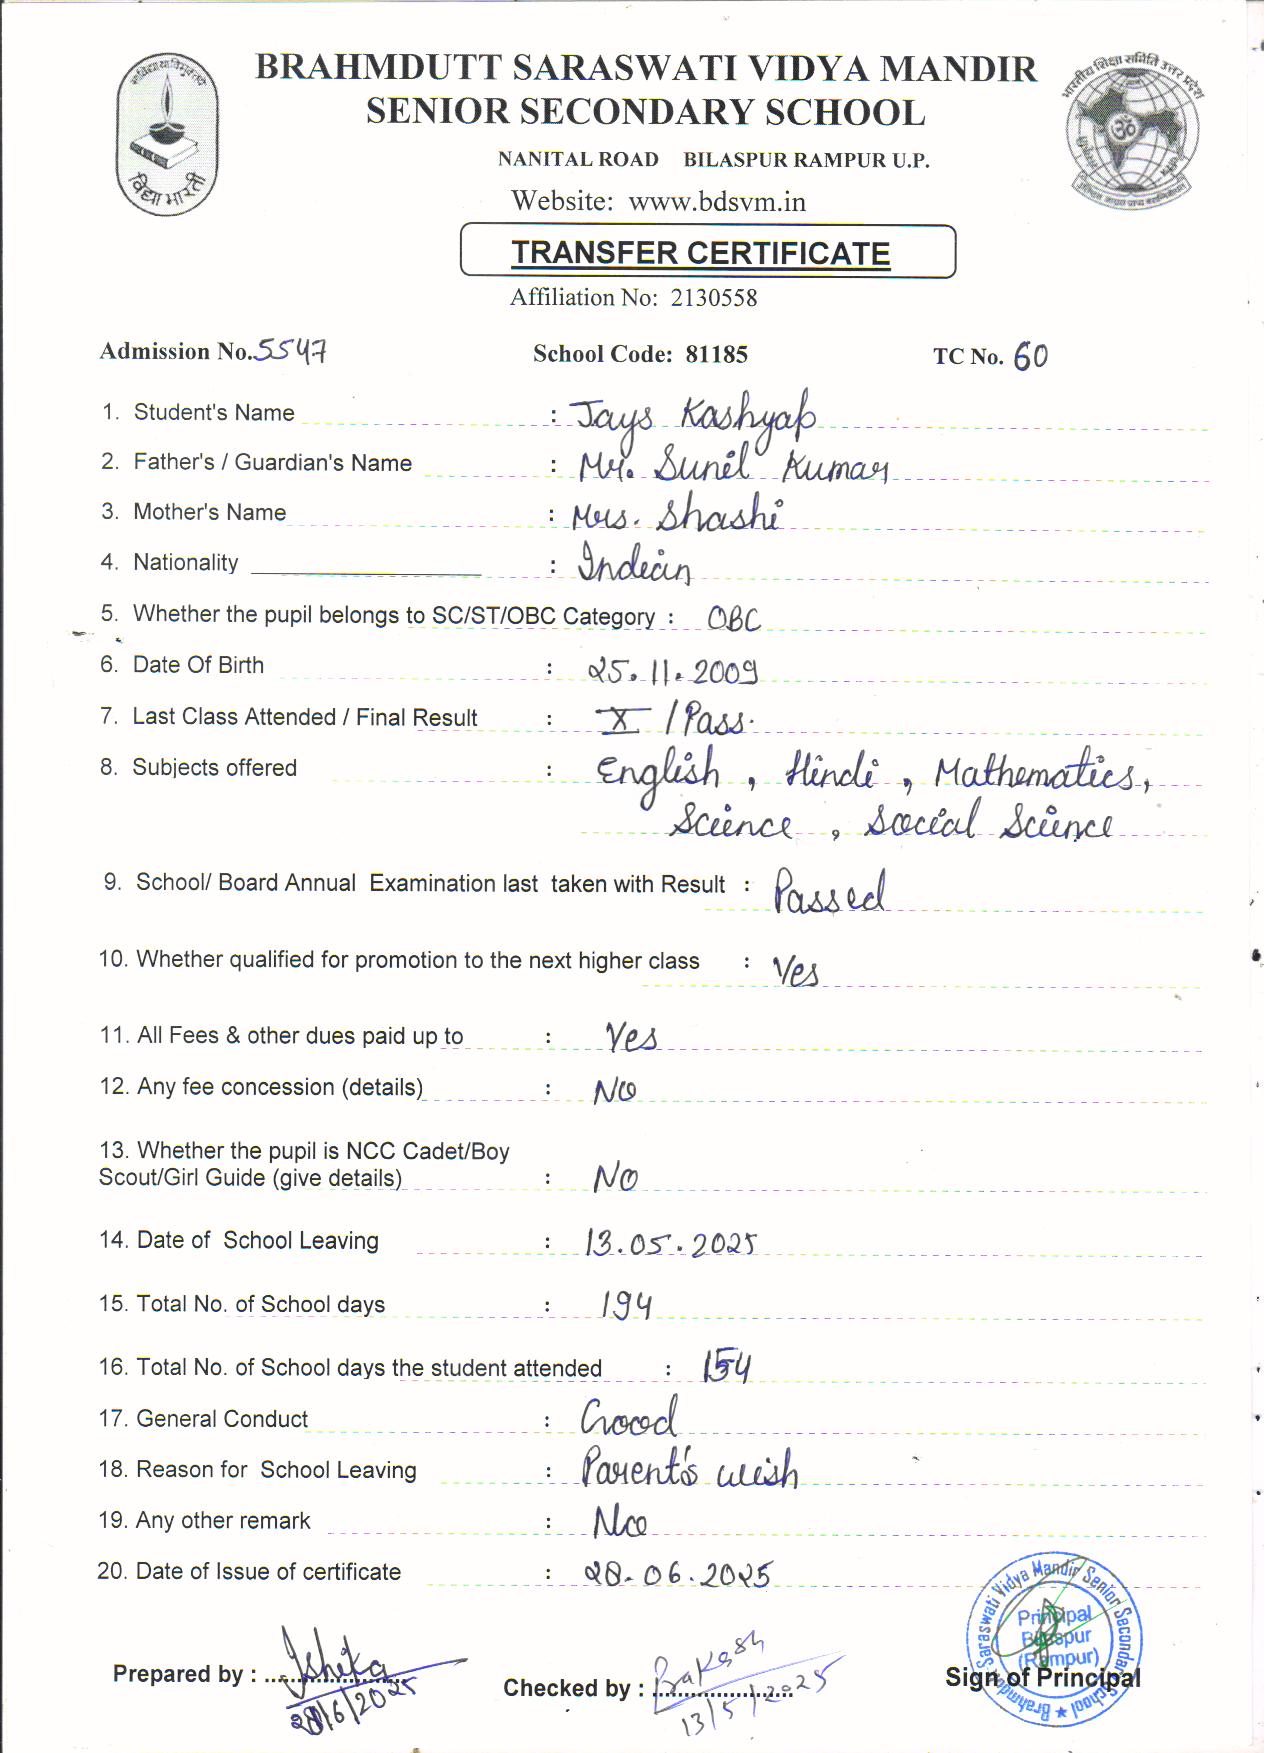 BRAHMDUTT SARASWATI VIDYA MANDIR
SENIOR SECONDARY SCHOOL
NANITAL ROAD BILASPUR RAMPUR U.P.
Website: www.bdsvm.in
विद्या भारती
भारतीय शिक्षा समिति उत्तर प्रदेश
TRANSFER CERTIFICATE
Affiliation No: 2130558
Admission No. 5547 School Code: 81185 TC No. 60
1. Student's Name : Jays Kashyap
2. Father's / Guardian's Name : Mr. Sunil Kumar
3. Mother's Name : Mrs. Shashi
4. Nationality : Indian
5. Whether the pupil belongs to SC/ST/OBC Category : OBC
6. Date Of Birth : 25.11.2009
7. Last Class Attended / Final Result : X / Pass.
8. Subjects offered : English, Hindi, Mathematics,
Science, Social Science
9. School/ Board Annual Examination last taken with Result : Passed
10. Whether qualified for promotion to the next higher class : Yes
11. All Fees & other dues paid up to : Yes
12. Any fee concession (details) : No
13. Whether the pupil is NCC Cadet/Boy
Scout/Girl Guide (give details) : No
14. Date of School Leaving : 13.05.2025
15. Total No. of School days : 194
16. Total No. of School days the student attended : 154
17. General Conduct : Good
18. Reason for School Leaving : Parent's wish
19. Any other remark : No
20. Date of Issue of certificate : 28.06.2025
Prepared by : Ishika
28/6/2025
Checked by : Rakesh
13/5/2025
Sign of Principal
Principal
Bilaspur
(Rampur)
Brahmdutt Saraswati Vidya Mandir Senior Secondary School